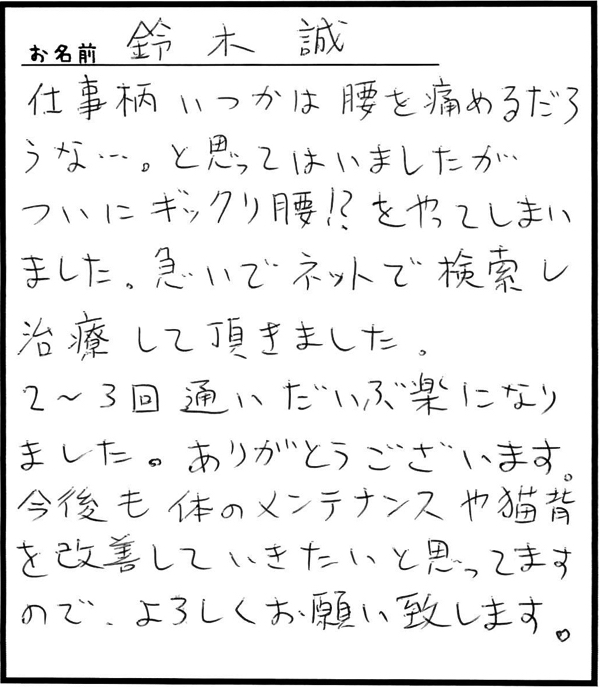 お名前 鈴木 誠
仕事柄いつかは腰を痛めるだろ
うな…。と思ってはいましたが
ついにギックリ腰!?をやってしまい
ました。急いでネットで検索し
治療して頂きました。
2～3回通いだいぶ楽になり
ました。ありがとうございます。
今後も体のメンテナンスや猫背
を改善していきたいと思ってます
ので、よろしくお願い致します。